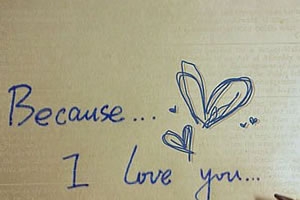 Because...
I love you...